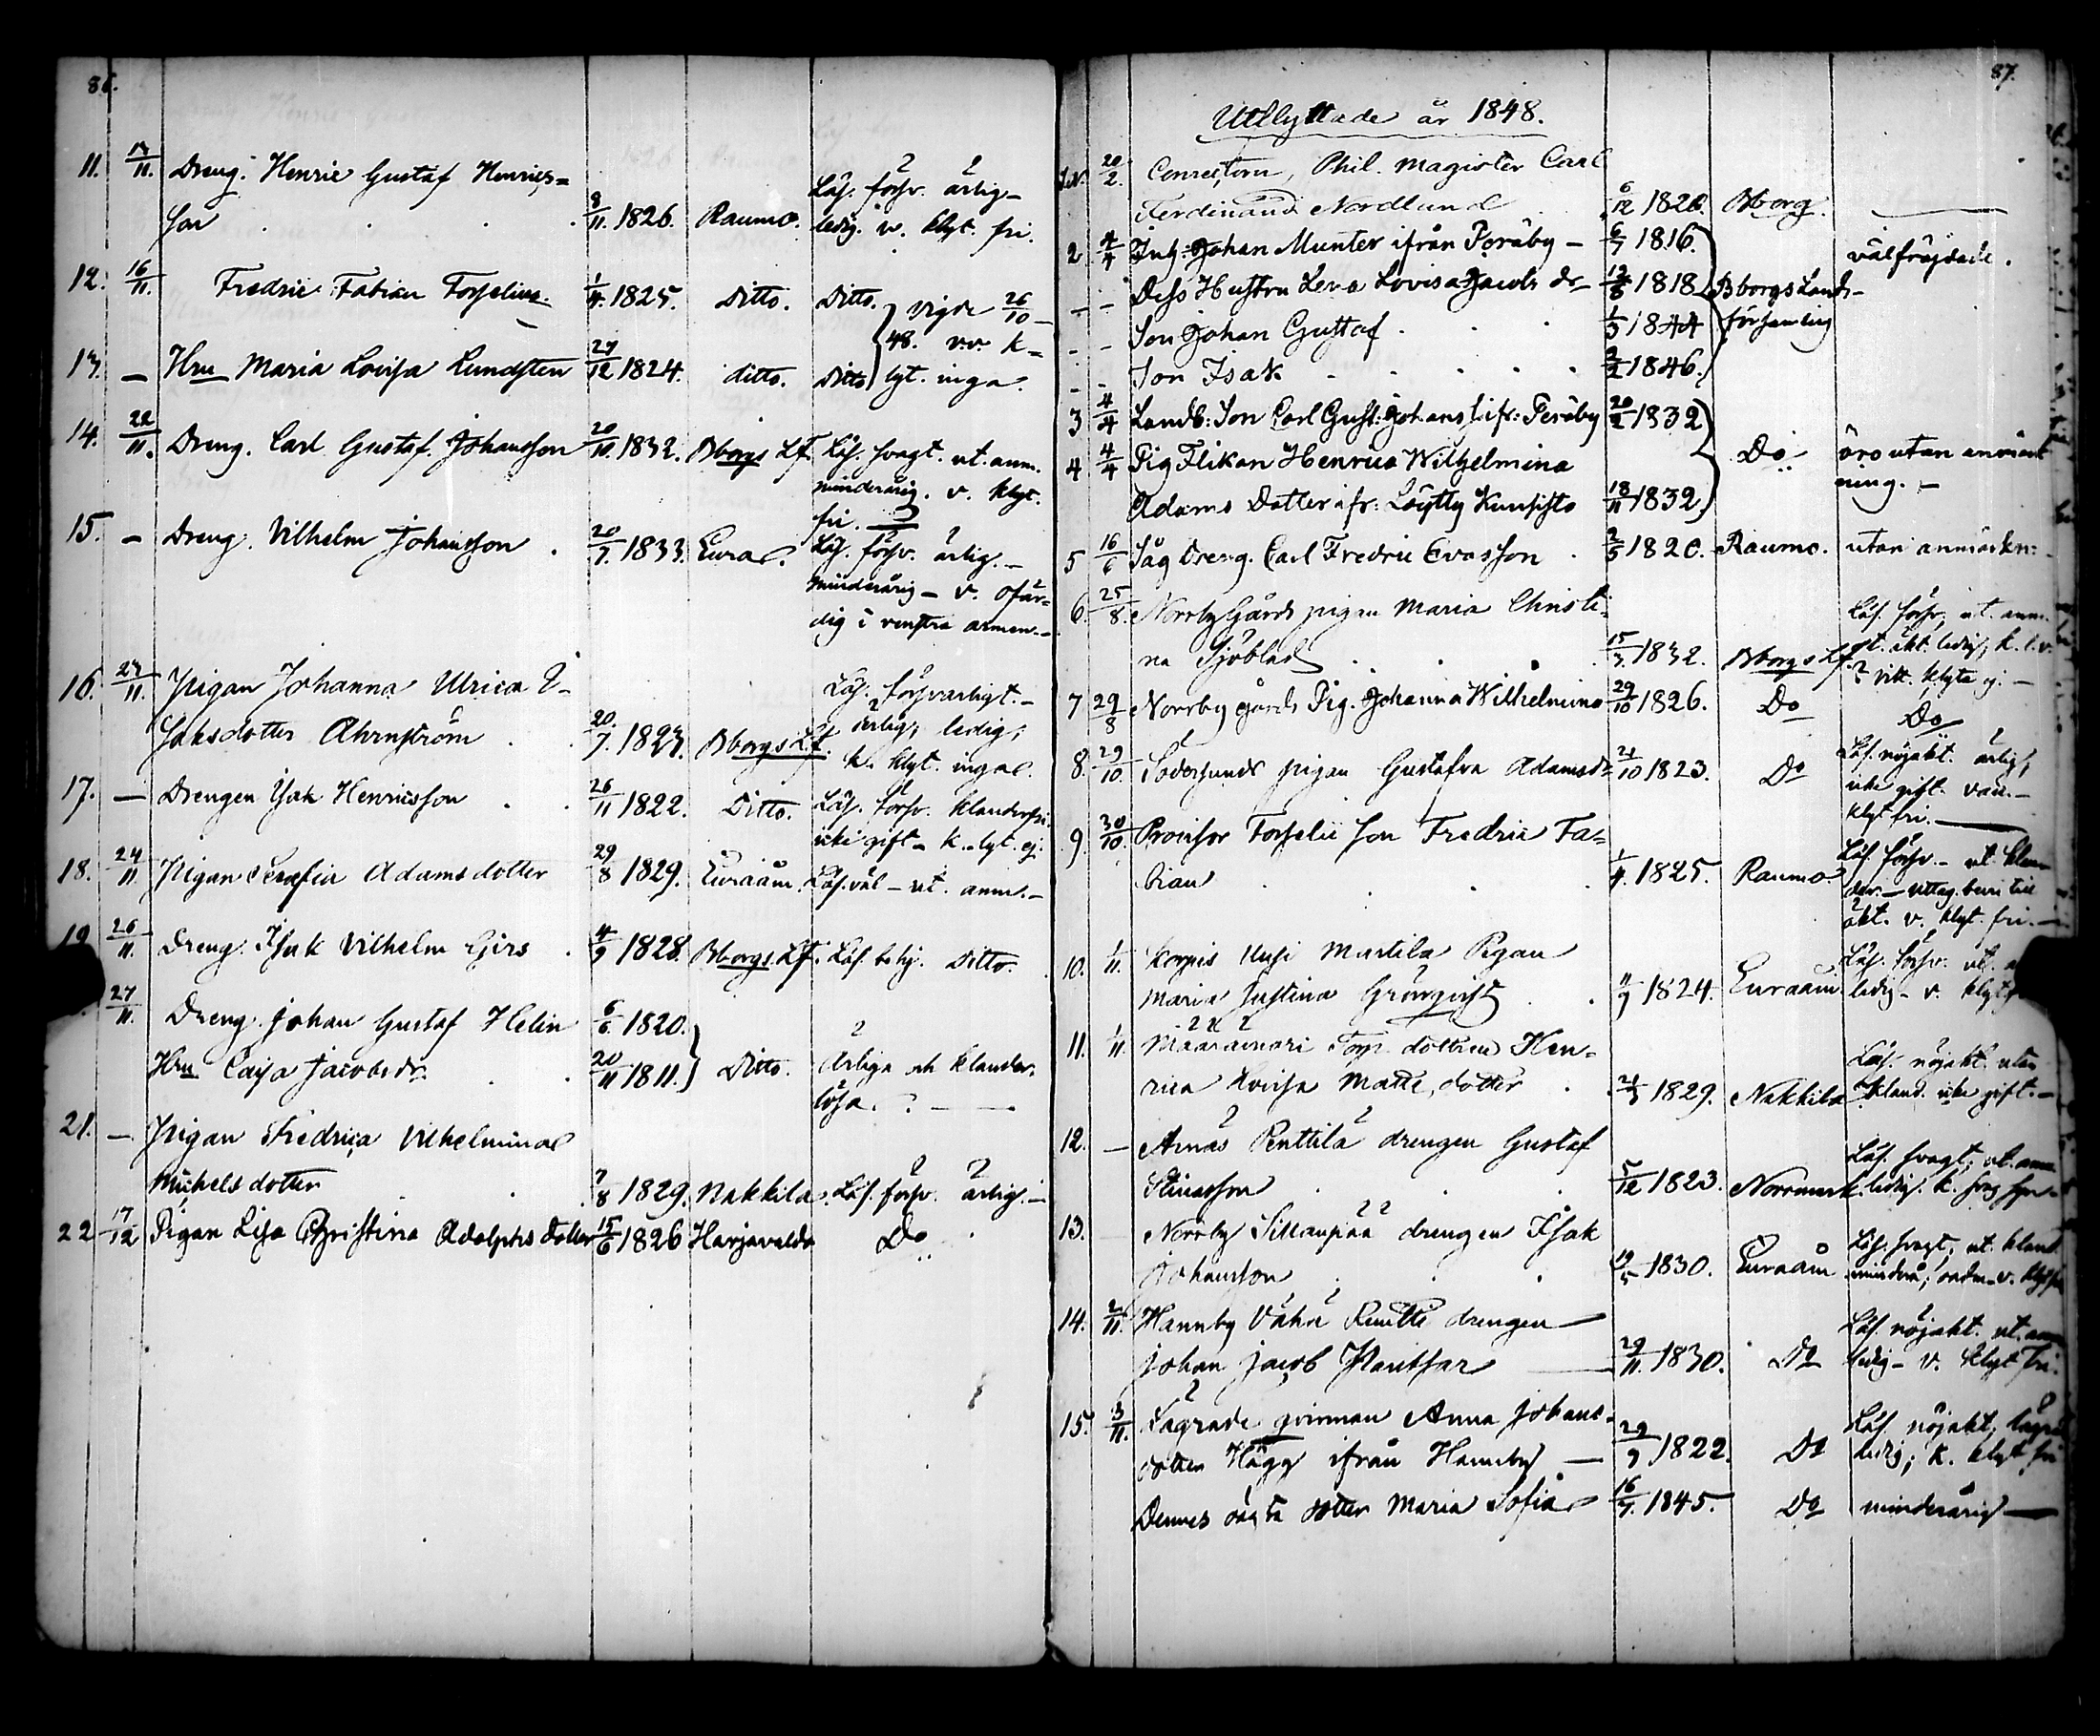 86.
11. 13/11. Dreng. Henric Gustaf Henrics=
son . . . . 8/11. 1826. Raumo. Läs. försv. ärlig -
ledig. v. klyt. fri.
12. 16/11. Fredric Fabian Forselius. 1/4. 1825. Ditto. Ditto. vigde 26/10
48. v.v. k=
13. – Hru Maria Lovisa Lundsten 27/12 1824. ditto. Ditto lyt. inga.
14. 22/11. Dreng. Carl Gustaf Johansson 20/10. 1832. Bborgs Lf. Läs. svagt. ut. anm.
minderårig. v. klyt.
fri.
15. – Dreng. Vilhelm Johansson . 20/7. 1833. Eura. Läs. försv. ärlig. –
minderårig – v. ofär=
dig i venstra armen. –
16. 23/11. Pigan Johanna Ulrica I-
saksdotter Ahrnström . . 20/7. 1823. Bborgs Lf. Läs. försvarligt. –
ärlig, ledig,
k. klyt. inga.
17. – Drengen Isak Henricsson . . 26/11 1822. Ditto. Läs. försv. klanderfri.
icke gift – k. lyt. ej.
18. 24/11 Pigan Serafia Adamsdotter 29/8 1829. Euraåm. Läs. väl – ut. anm. –
19. 26/11. Dreng. Isak Vilhelm Girs . 4/9 1828. Bborgs Lf. Läs. behj. Ditto.
27/11. Dreng. Johan Gustaf Helin 6/6. 1820.
Hru Caisa Jacobsdr. . . 20/11 1811. Ditto. Ärliga och klander=
lösa. –
21. – Pigan Fredrica Vilhelmina
Michelsdotter . . 7/8 1829. Nakkila. Läs. försv. ärlig. –
22 17/12 Pigan Lisa Christina Adolphs dotter 15/6 1826 Harjavalda Do
87.
Utflyttade år 1848.
20/2. Conrectorn, Phil. Magister Carl
Ferdinand Nordlund 6/12 1820. Bborg.
2 4/4 Inh: Johan Munter ifrån Toråby – 6/7 1816. välfräjdade.
– – Dess Hustru Lena Lovisa Jacobs dr – 12/8 1818 Bborgs Lands-
– – Son Johan Gustaf . . . 1/3 1844 församling
– – Son Isak . . . . 2/2 1846.
3 4/4 Landb: Son Carl Gust: Johanss ifr: Toråby 20/2 1832
4 4/4 Pig Flikan Henrica Wilhelmina Do äro utan anmärk
ning. –
Adams Dotter ifr: Löytty Kunsisto 18/11 1832
5 16/6 Såg Dreng. Carl Fredric Evasson . 2/5 1820. Raumo. utan anmärkn:
6. 25/8. Norrby Gårds pigan Maria Christi-
na Sjöblad . . . 15/3. 1832. Bborgs Lf. Läs. försv. ut. anm.
7 29/8 Norrby gårds Pig. Johanna Wilhelmina 29/10 1826. Do Do
8. 29/10 Södersunds pigan Gustafva Adamsdr 21/10 1823. Do Läs. nöjakt. ärlig,
icke gift. vac. –
klyt fri. –
9. 30/10. Provisor Forselii Son Fredric Fa=
bian . . . 1/4. 1825. Raumo. Läs. försv. – ut. klan-
der. – uttag. bevis till
äkt. v. klyt. fri. –
10. 1/11. Korpis Uusi Martila Pigan
Maria Justina Grönqvist . . 11/9 1824. Euraåm. Läs. försv. ut.
ledig – v. klyt
11. 1/11. Määrämäri Torp dottren Hen=
rica Lovisa Matts dotter . 21/3 1829. Nakkila Läs. nöjakt. utan
kland. icke gift. –
12. – Arnäs Penttilä drengen Gustaf
Stinasson . . . 5/12 1823. Norrmark. Läs. svagt, ut. anm.
ledig. k.
13. Norrby Sillanpää drengen Isak
Johansson . . 19/5 1830. Euraåm Läs. svagt, ut. kland.
14. 2/11. Hannby Vähä Penttis drengen
Johan Jacob Mantsar – 29/11. 1830. Do Läs. nöjakt. ut. anm
ledig – v. klyt fri.
15. 3/11. Lägrade qvinnan Anna Johans-
dotter Hägg ifrån Hannby – 29/9 1822. Do Läs. nöjakt; lägrad
ledig; k. klyt fri
Dennes oägta dotter Maria Sofia 16/7. 1845. Do minderårig –